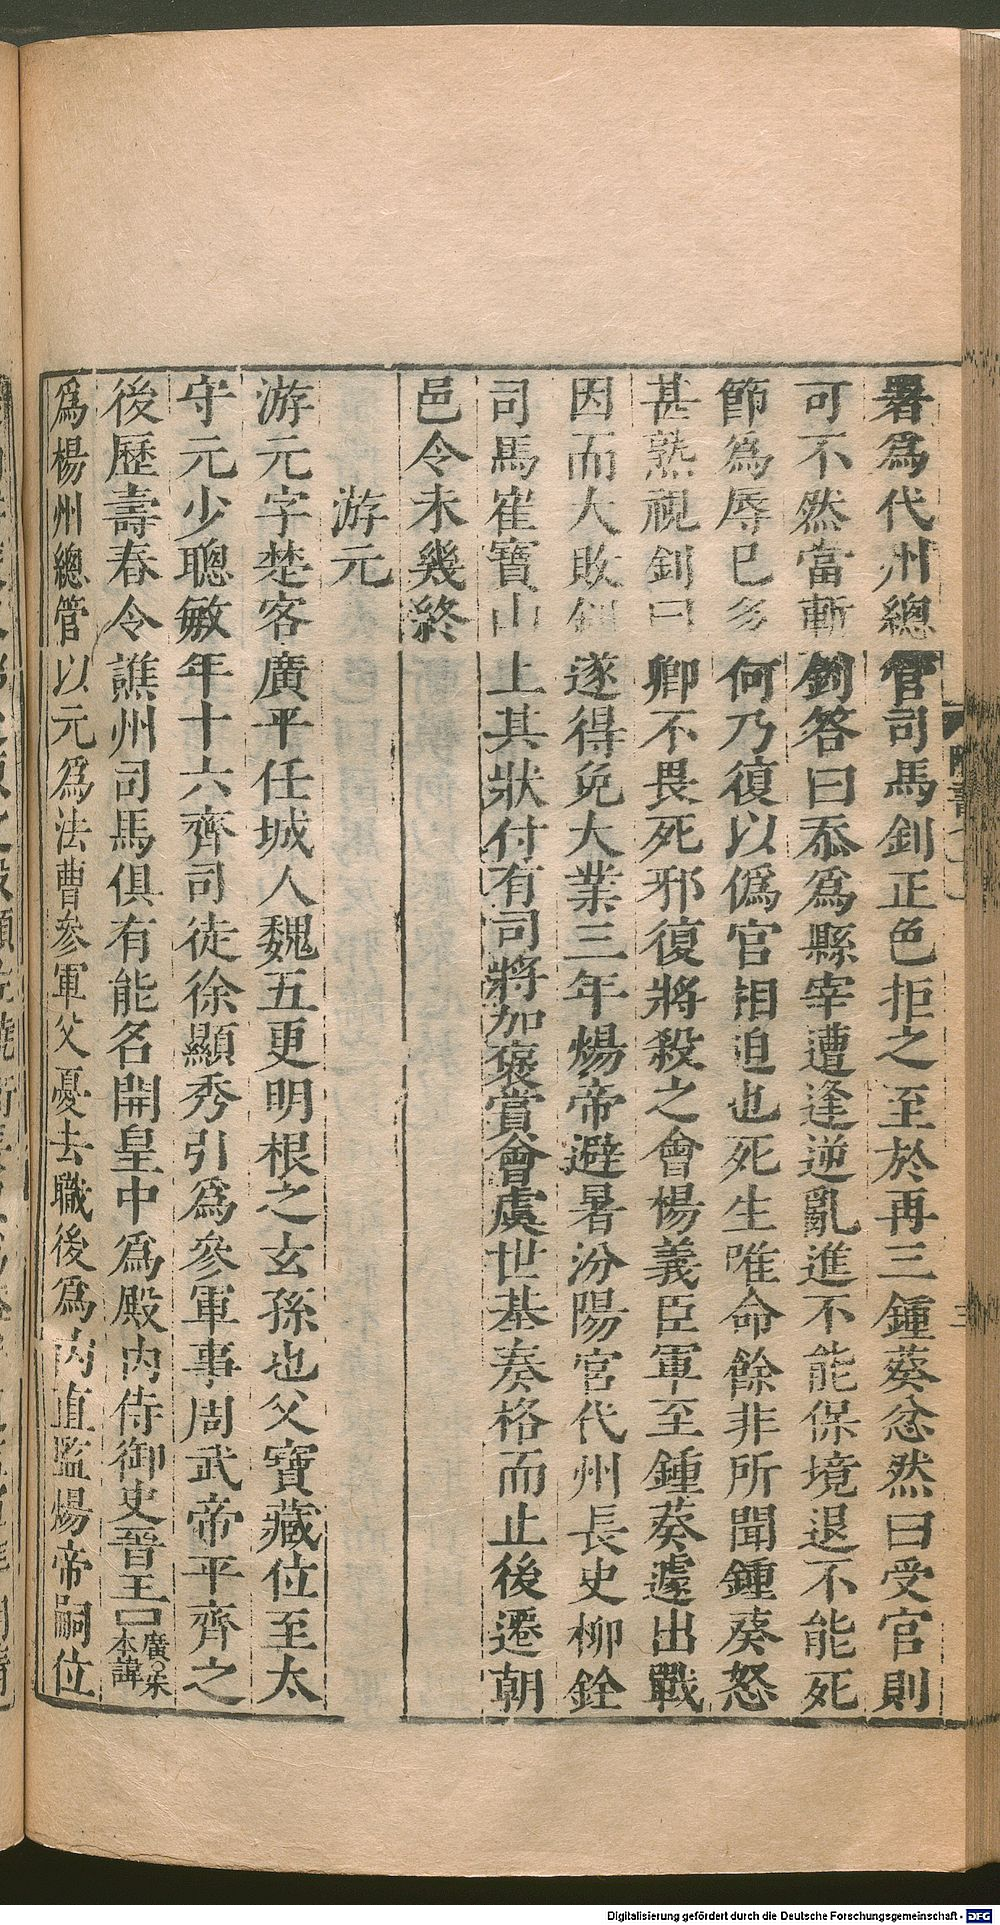 署爲代州總管司馬釗正色拒之至於再三鍾葵忿然曰受官則
可不然當斬釗答曰忝爲縣宰遭逢逆亂進不能保境退不能死
節爲辱已多何乃復以僞官相迫也死生唯命餘非所聞鍾葵怒
甚熟視釗曰卿不畏死邪復將殺之會楊義臣軍至鍾葵遽出戰
因而大敗釗遂得免大業三年煬帝避暑汾陽宮代州長史柳銓
司馬崔寶山上其狀付有司將加褒賞會虞世基奏格而止後遷朝
邑令未幾終
游元
游元字楚客廣平任城人魏五更明根之玄孫也父寶藏位至太
守元少聰敏年十六齊司徒徐顯秀引爲參軍事周武帝平齊之
後歷壽春令譙州司馬俱有能名開皇中爲殿內侍御史晉王囗廣〇宋本諱
爲楊州總管以元爲法曹參軍父憂去職後爲內直監煬帝嗣位
隋書七
三
Digitalisierung gefördert durch die Deutsche Forschungsgemeinschaft - DFG